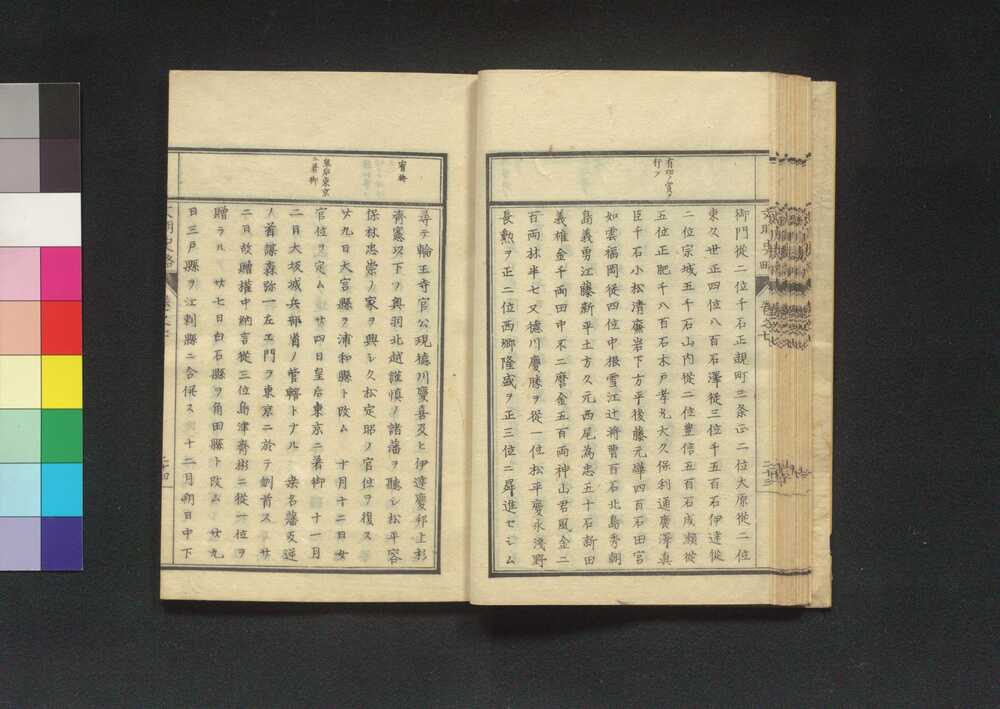 有功ノ賞ヲ
行フ
御門從二位千石正親町三条正二位大原從二位
東久世正四位八百石澤從三位千五百石伊達從
二位宗城五千石山内從二位豊信五百石成瀬從
五位正肥千八百石木戸孝允大久保利通廣澤真
臣千石小松清廉岩下方平後藤元燁四百石田宮
如雲福岡從四位中根雪江辻将曹百石北島秀朝
島義勇江藤新平土方久元西尾為忠五十石新田
義雄金千両田中不二麿金五百両神山君風金二
百両林半七又徳川慶勝ヲ從一位松平慶永浅野
長勲ヲ正二位西郷隆盛ヲ正三位ニ昇進セシム
宥赦
皇后東京
ニ着御
尋テ輪王寺宮公現徳川慶喜及ヒ伊達慶邦上杉
齊憲以下ヲ奥羽北越謹慎ノ諸藩ヲ聽シ松平容
保林忠崇ノ家ヲ興シ久松定昭ノ官位ヲ復ス
廿九日大宮縣ヲ浦和縣ト改ム 十月十二日女
官位ヲ定ム 廿四日皇后東京ニ着御 十一月
二日大坂城兵部省ノ管轄トナル 桑名藩反逆
ノ首謀森弥一左エ門ヲ東京ニ於テ刎首ス 廿
二日故贈權中納言從三位島津齊彬ニ從一位ヲ
贈ラル 廿七日白石縣ヲ角田縣ト改ム 廿九
日三戸縣ヲ江刺縣ニ合併ス 十二月朔日中下